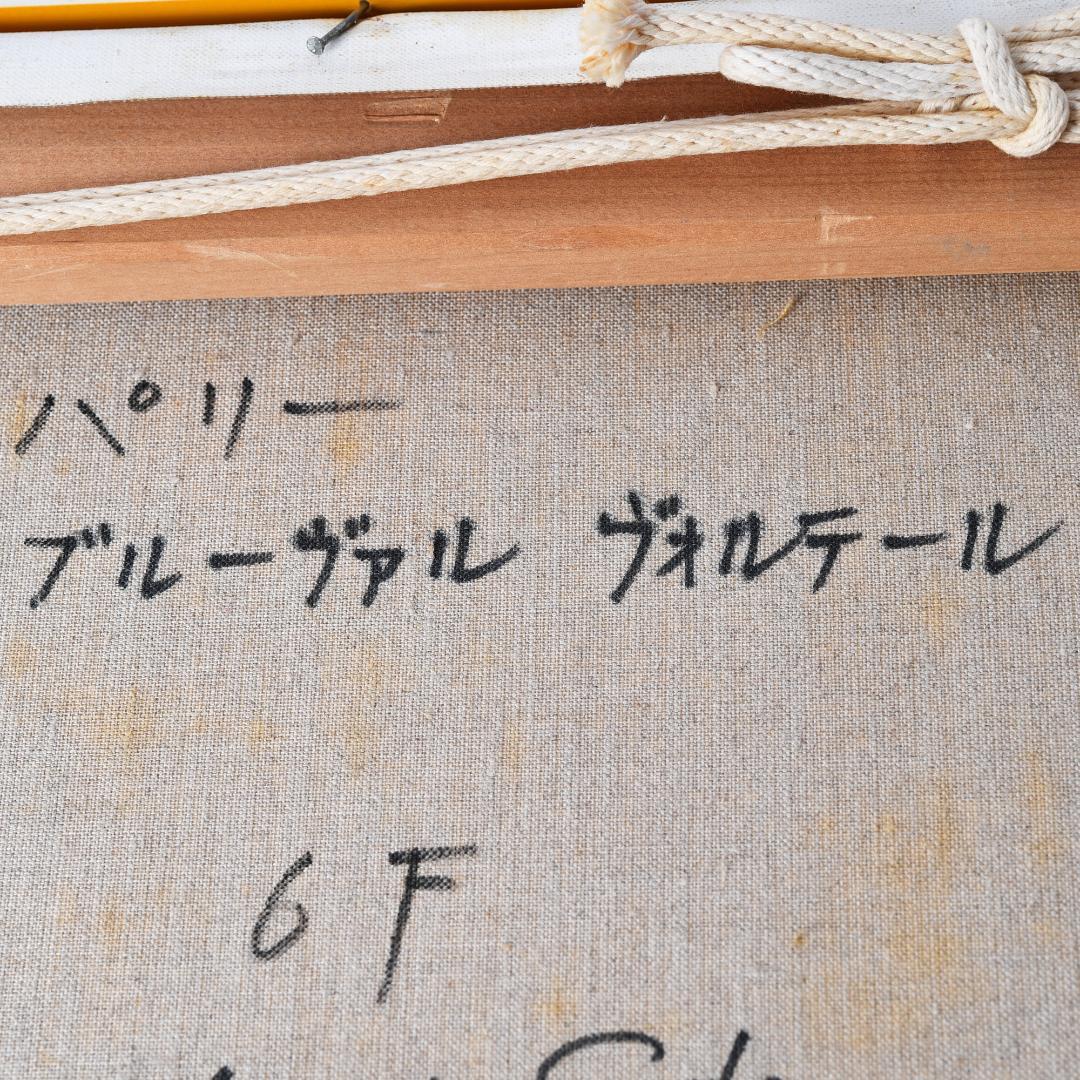 パリー
ブルーヴァル ヴォルテール
6F